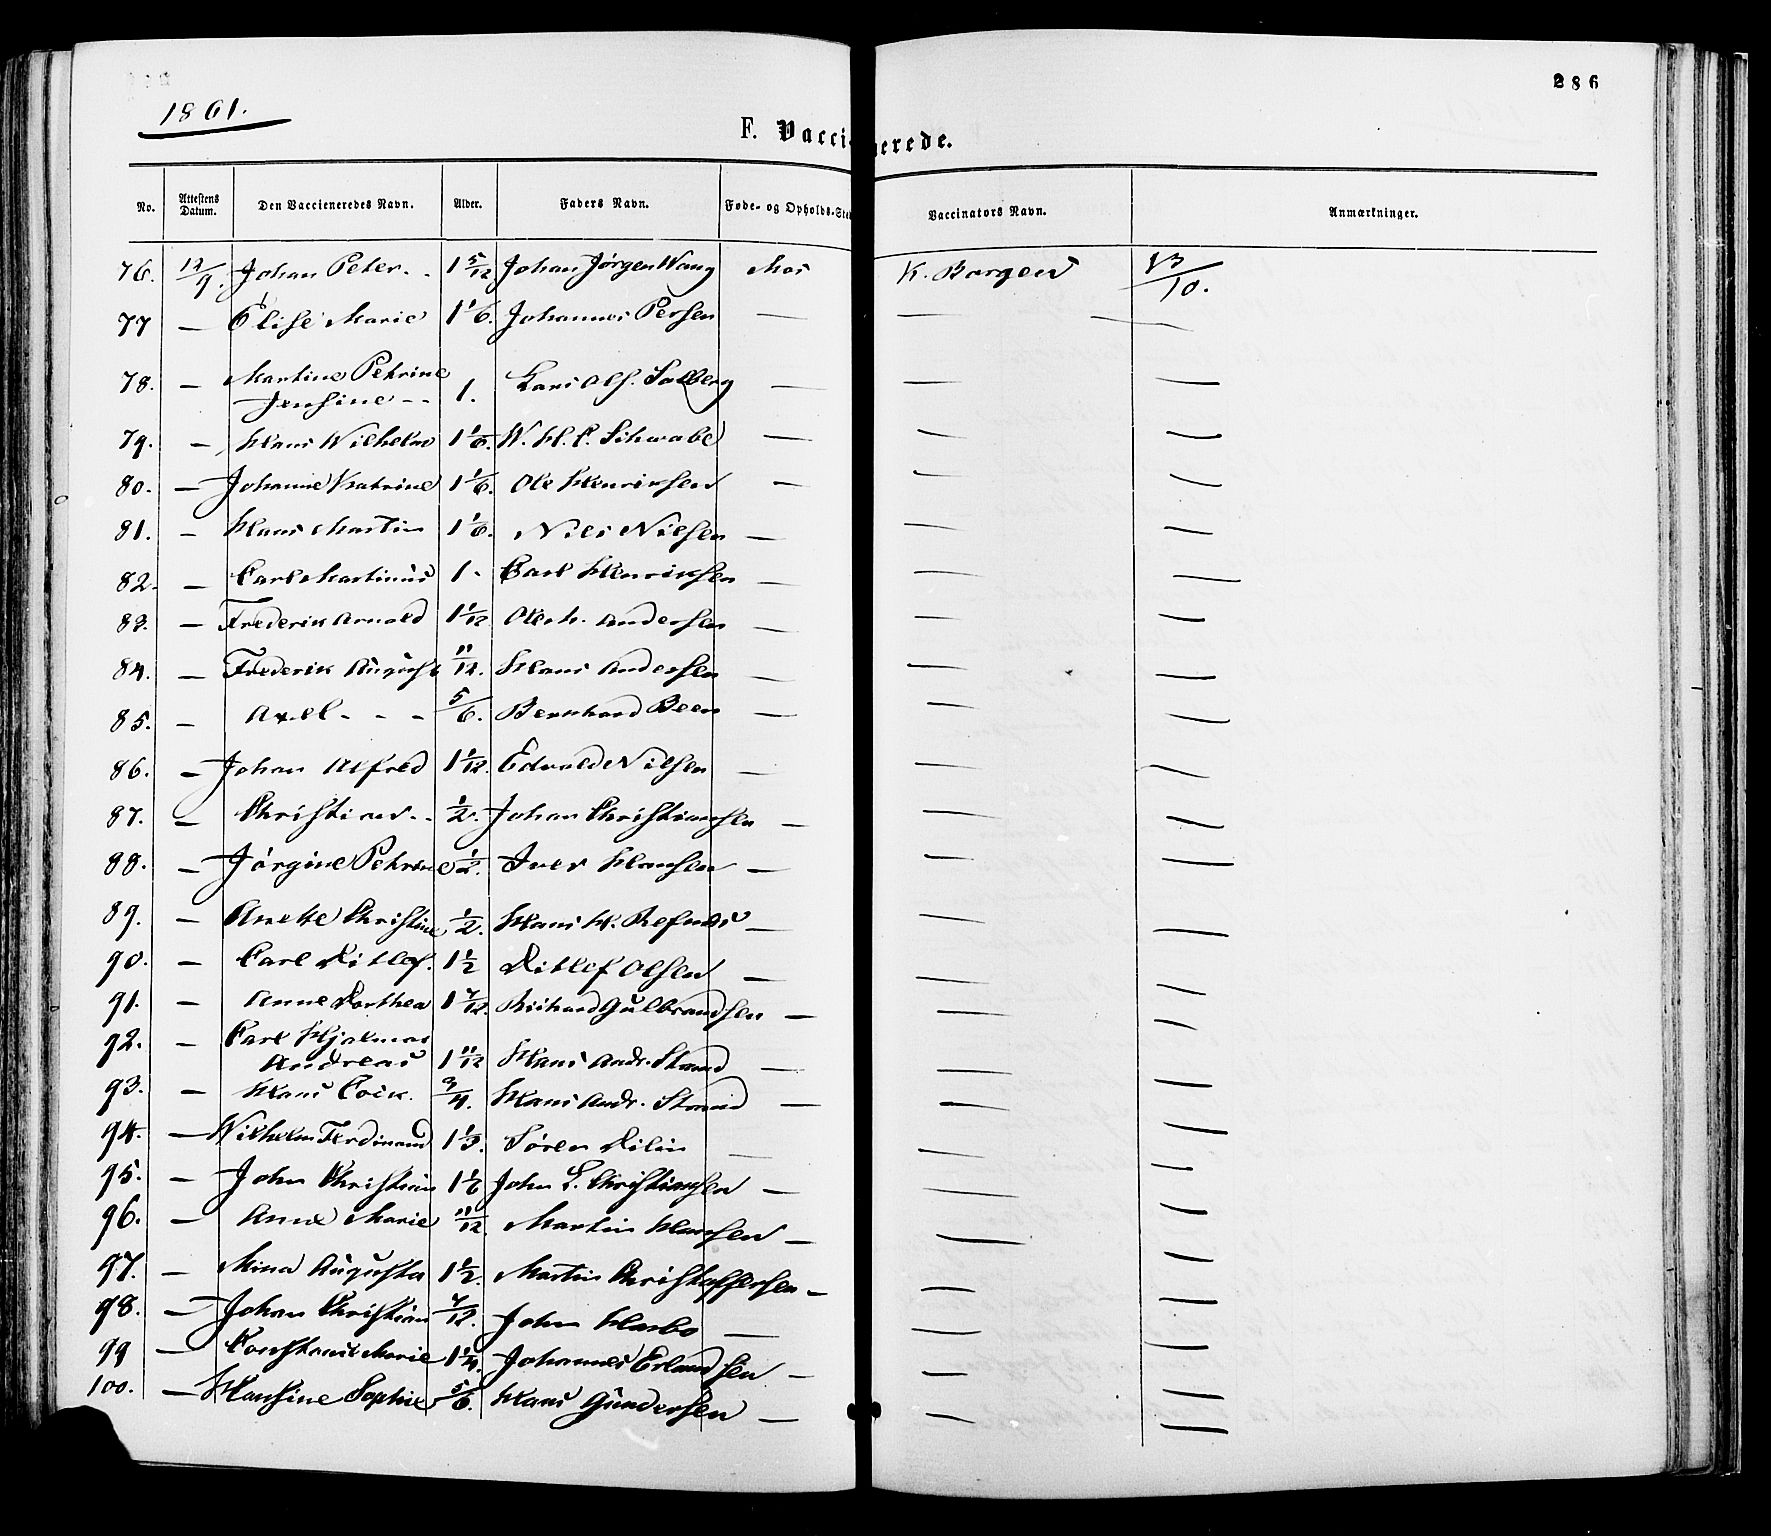 286
1861.
F. Vaccinerede.
No. Attestens Datum. Den Vaccieneredes Navn. Alder. Faders Navn. Føde- og Opholds-Sted Vaccinators Navn. Anmærkninger.
76. 12/9. Johan Peter. - 1 5/12 Johan Jørgen Wang Mos K. Borgen 13/10.
77 — Elise Marie 1 1/6. Johannes Persen — — —
78. — Martine Petrine
Jensine - - 1. Lars Ols. Solberg — — —
79. — Hans Wilhelm 1 1/6. W. H. C. Schwabe — — —
80. — Johanne Katrine 1 1/6. Ole Henriksen — — —
81. — Hans Martin 1 1/6. Nils Nilsen — — —
82. — Carl Martinus 1 - Carl Henriksen — — —
83. — Frederik Arnold 1 1/12 Ole M. Andersen — — —
84. — Frederik August 11/12. Hans Andersen — — —
85. — Axel - - - 5/6. Bernhard Been — — —
86. — Johan Alfred 1 1/12. Edvald Nilsen — — —
87. — Christian - - 1/2. Johan Christiansen — — —
88. — Jørgine Petrine 1/2. Iver Hansen — — —
89. — Anette Christine 1/2. Hans H. Refnes — — —
90. — Carl Ditlef. 1 1/2 Ditlef Olsen — — —
91. — Anne Dorthea 1 7/12. Richard Gulbrandsen — — —
92. — Carl Hjalmar
Andreas 1 11/12 Hans Andr. Strand — — —
93. — Hans Coik. 3/4. Hans Andr. Strand — — —
94. — Wilhelm Ferdinand 1 1/3. Søren — — —
95. — John Christian 1 1/6 John L. Christiansen — — —
96. — Anne Marie 11/12. Martin Hansen — — —
97. — Mina Augusta 1 1/2. Martin Christoffersen — — —
98. — Johan Christian 7/12. John Harbo — — —
99 — Constanse Marie 1 1/4. Johannes Erlandsen — — —
100. — Hansine Sophie 5/6. Hans Gundersen — — —